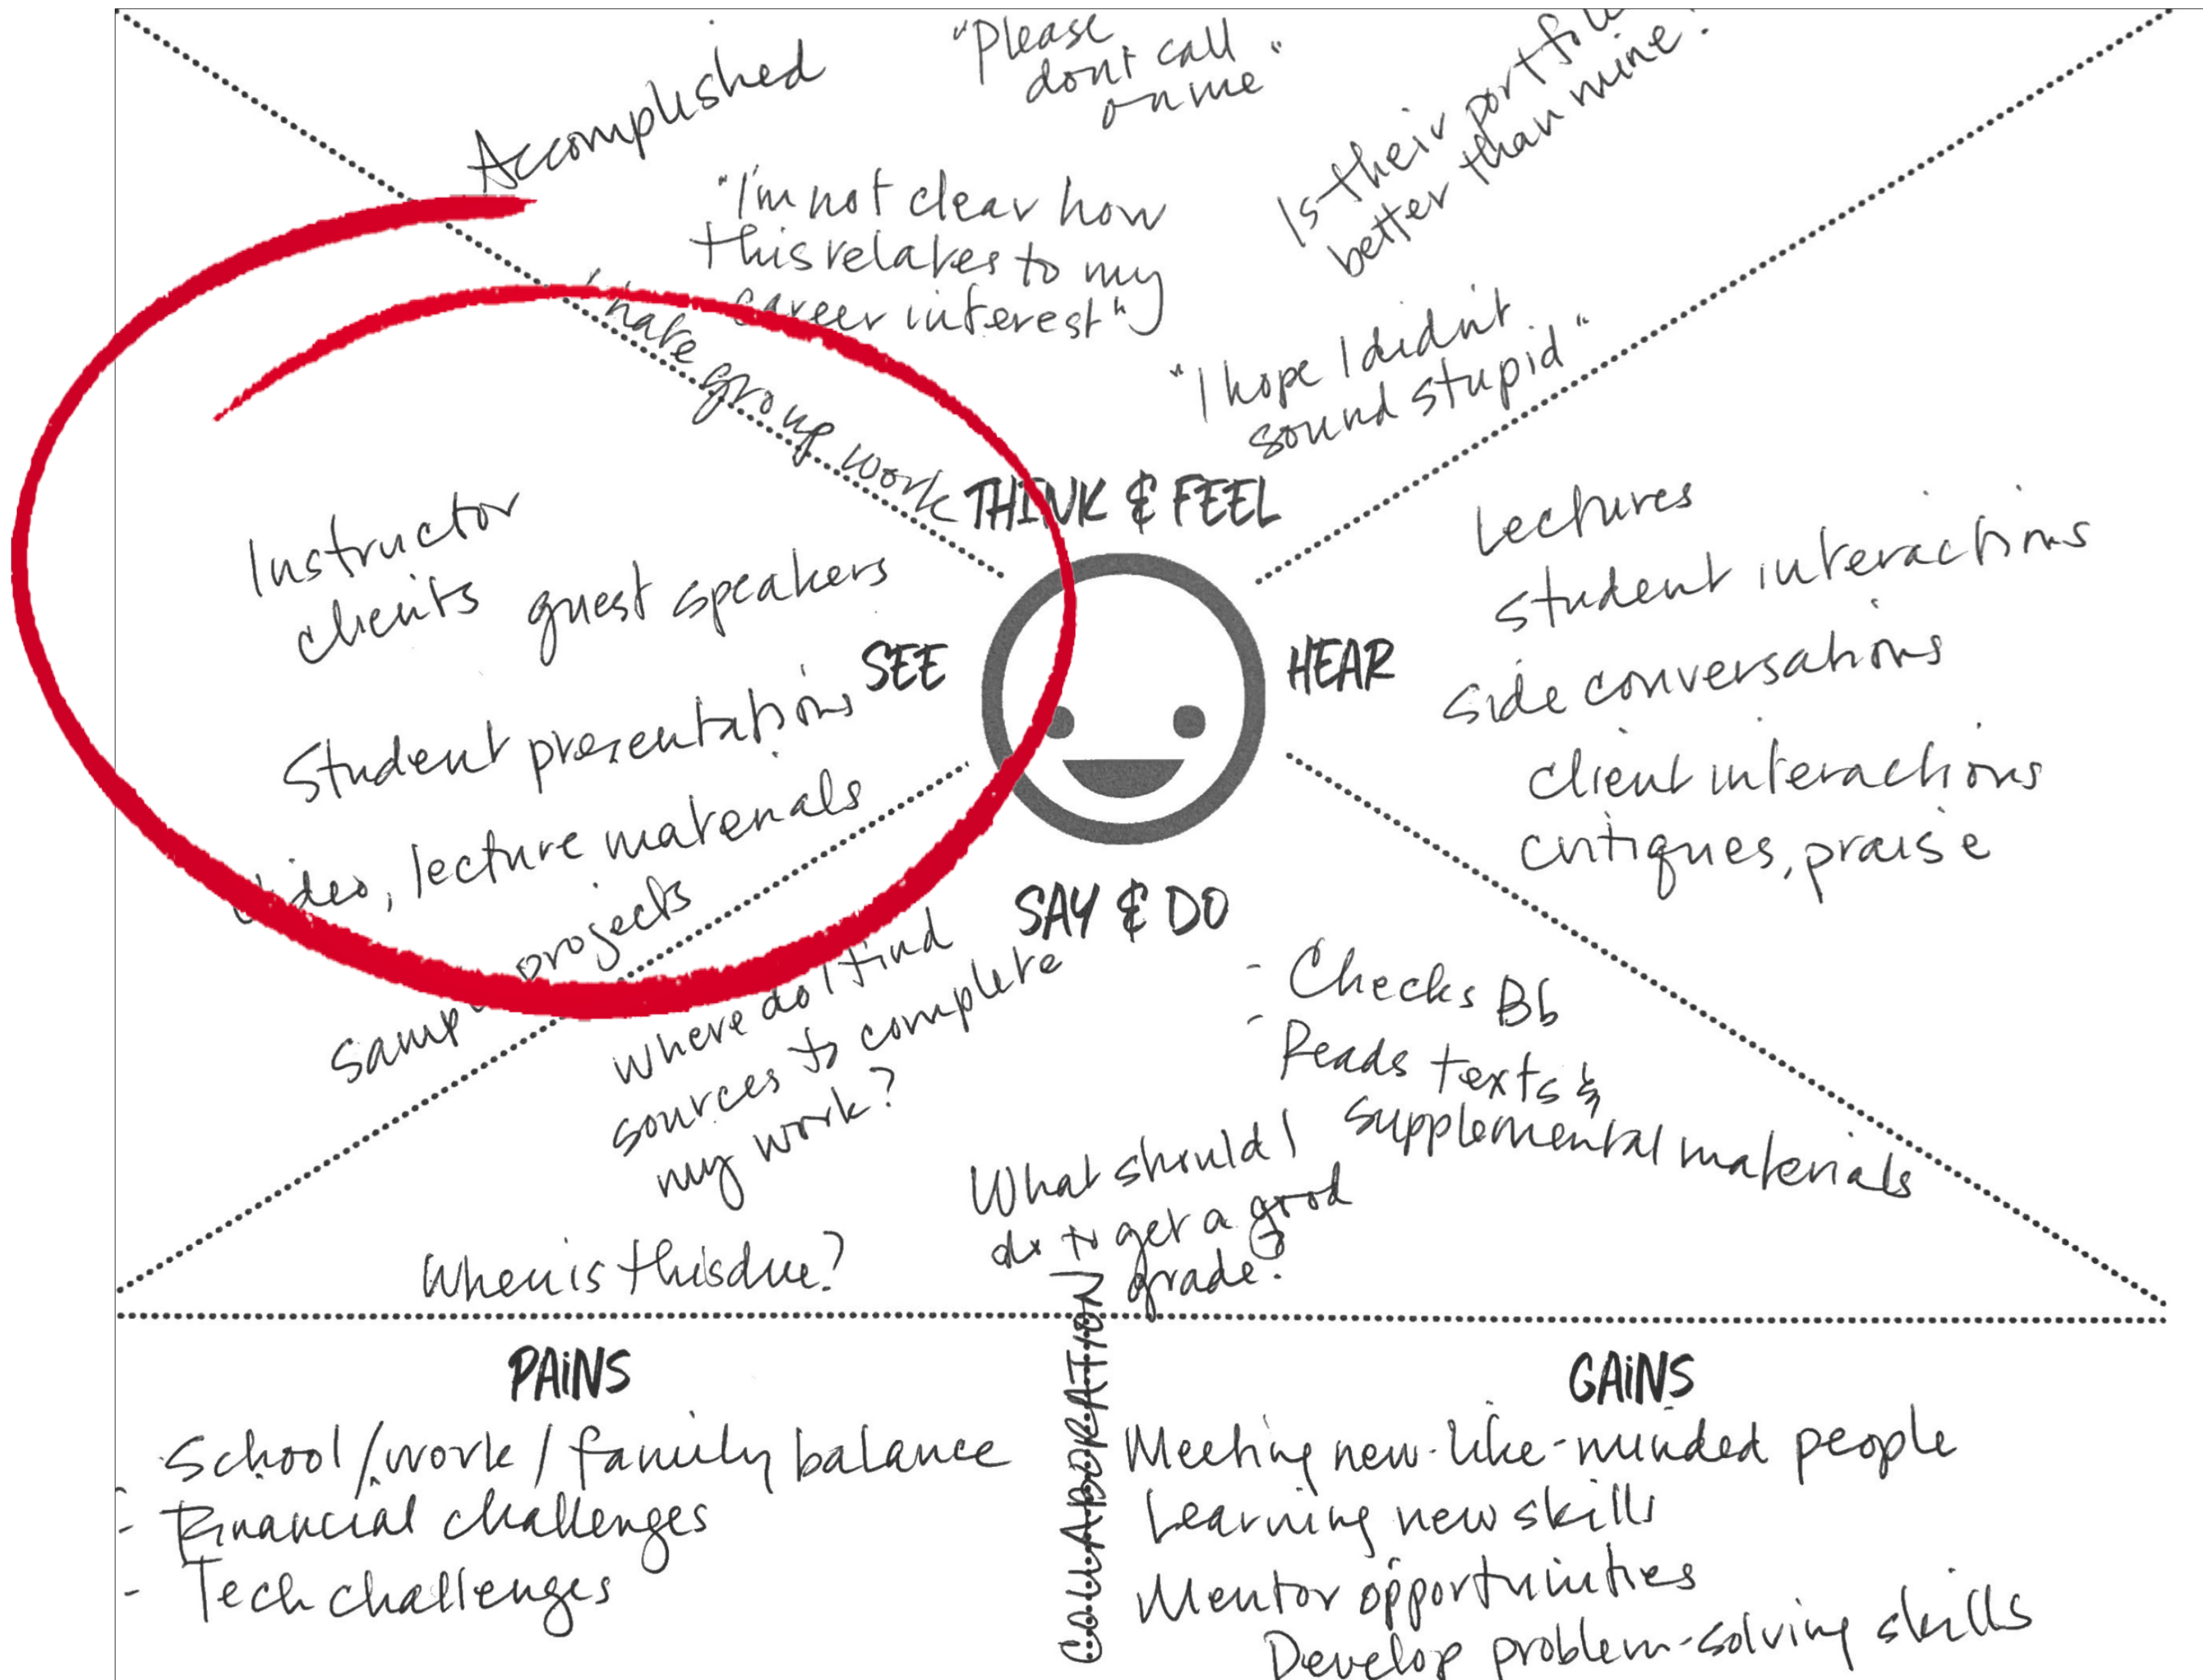 Accomplished
"Please
dont call
on me"
Is their portfolio
better than mine?
"I'm not clear how
this relates to my
career interest"
"I hope I didn't
sound stupid"
hate group work
THINK & FEEL
Instructor
clients guest speakers
SEE
Student presentations
video, lecture materials
Sample projects
HEAR
Lectures
student interactions
side conversations
client interactions
critiques, praise
SAY & DO
where do I find
sources to complete
my work?
When is this due?
What should I
do to get a good
grade?
- Checks Bb
- Reads texts &
supplemental materials
PAiNS
School/work/family balance
- Financial challenges
- Tech challenges
COLLABORATION
GAiNS
Meeting new-like-minded people
Learning new skills
Mentor opportunities
Develop problem-solving skills